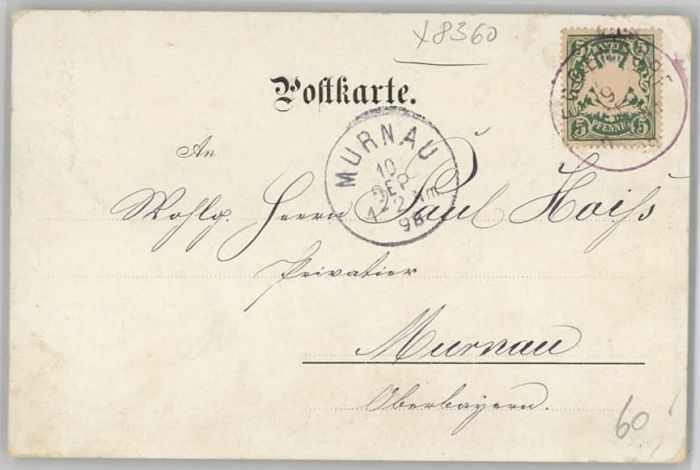 x8360
5 5
5 PFENNIG 5
9
Postkarte.
MURNAU
10
SEP
1-2 Nm
98
An
Wohlg. Herrn Paul Hoiss
Privatier
Murnau
Oberbayern.
60